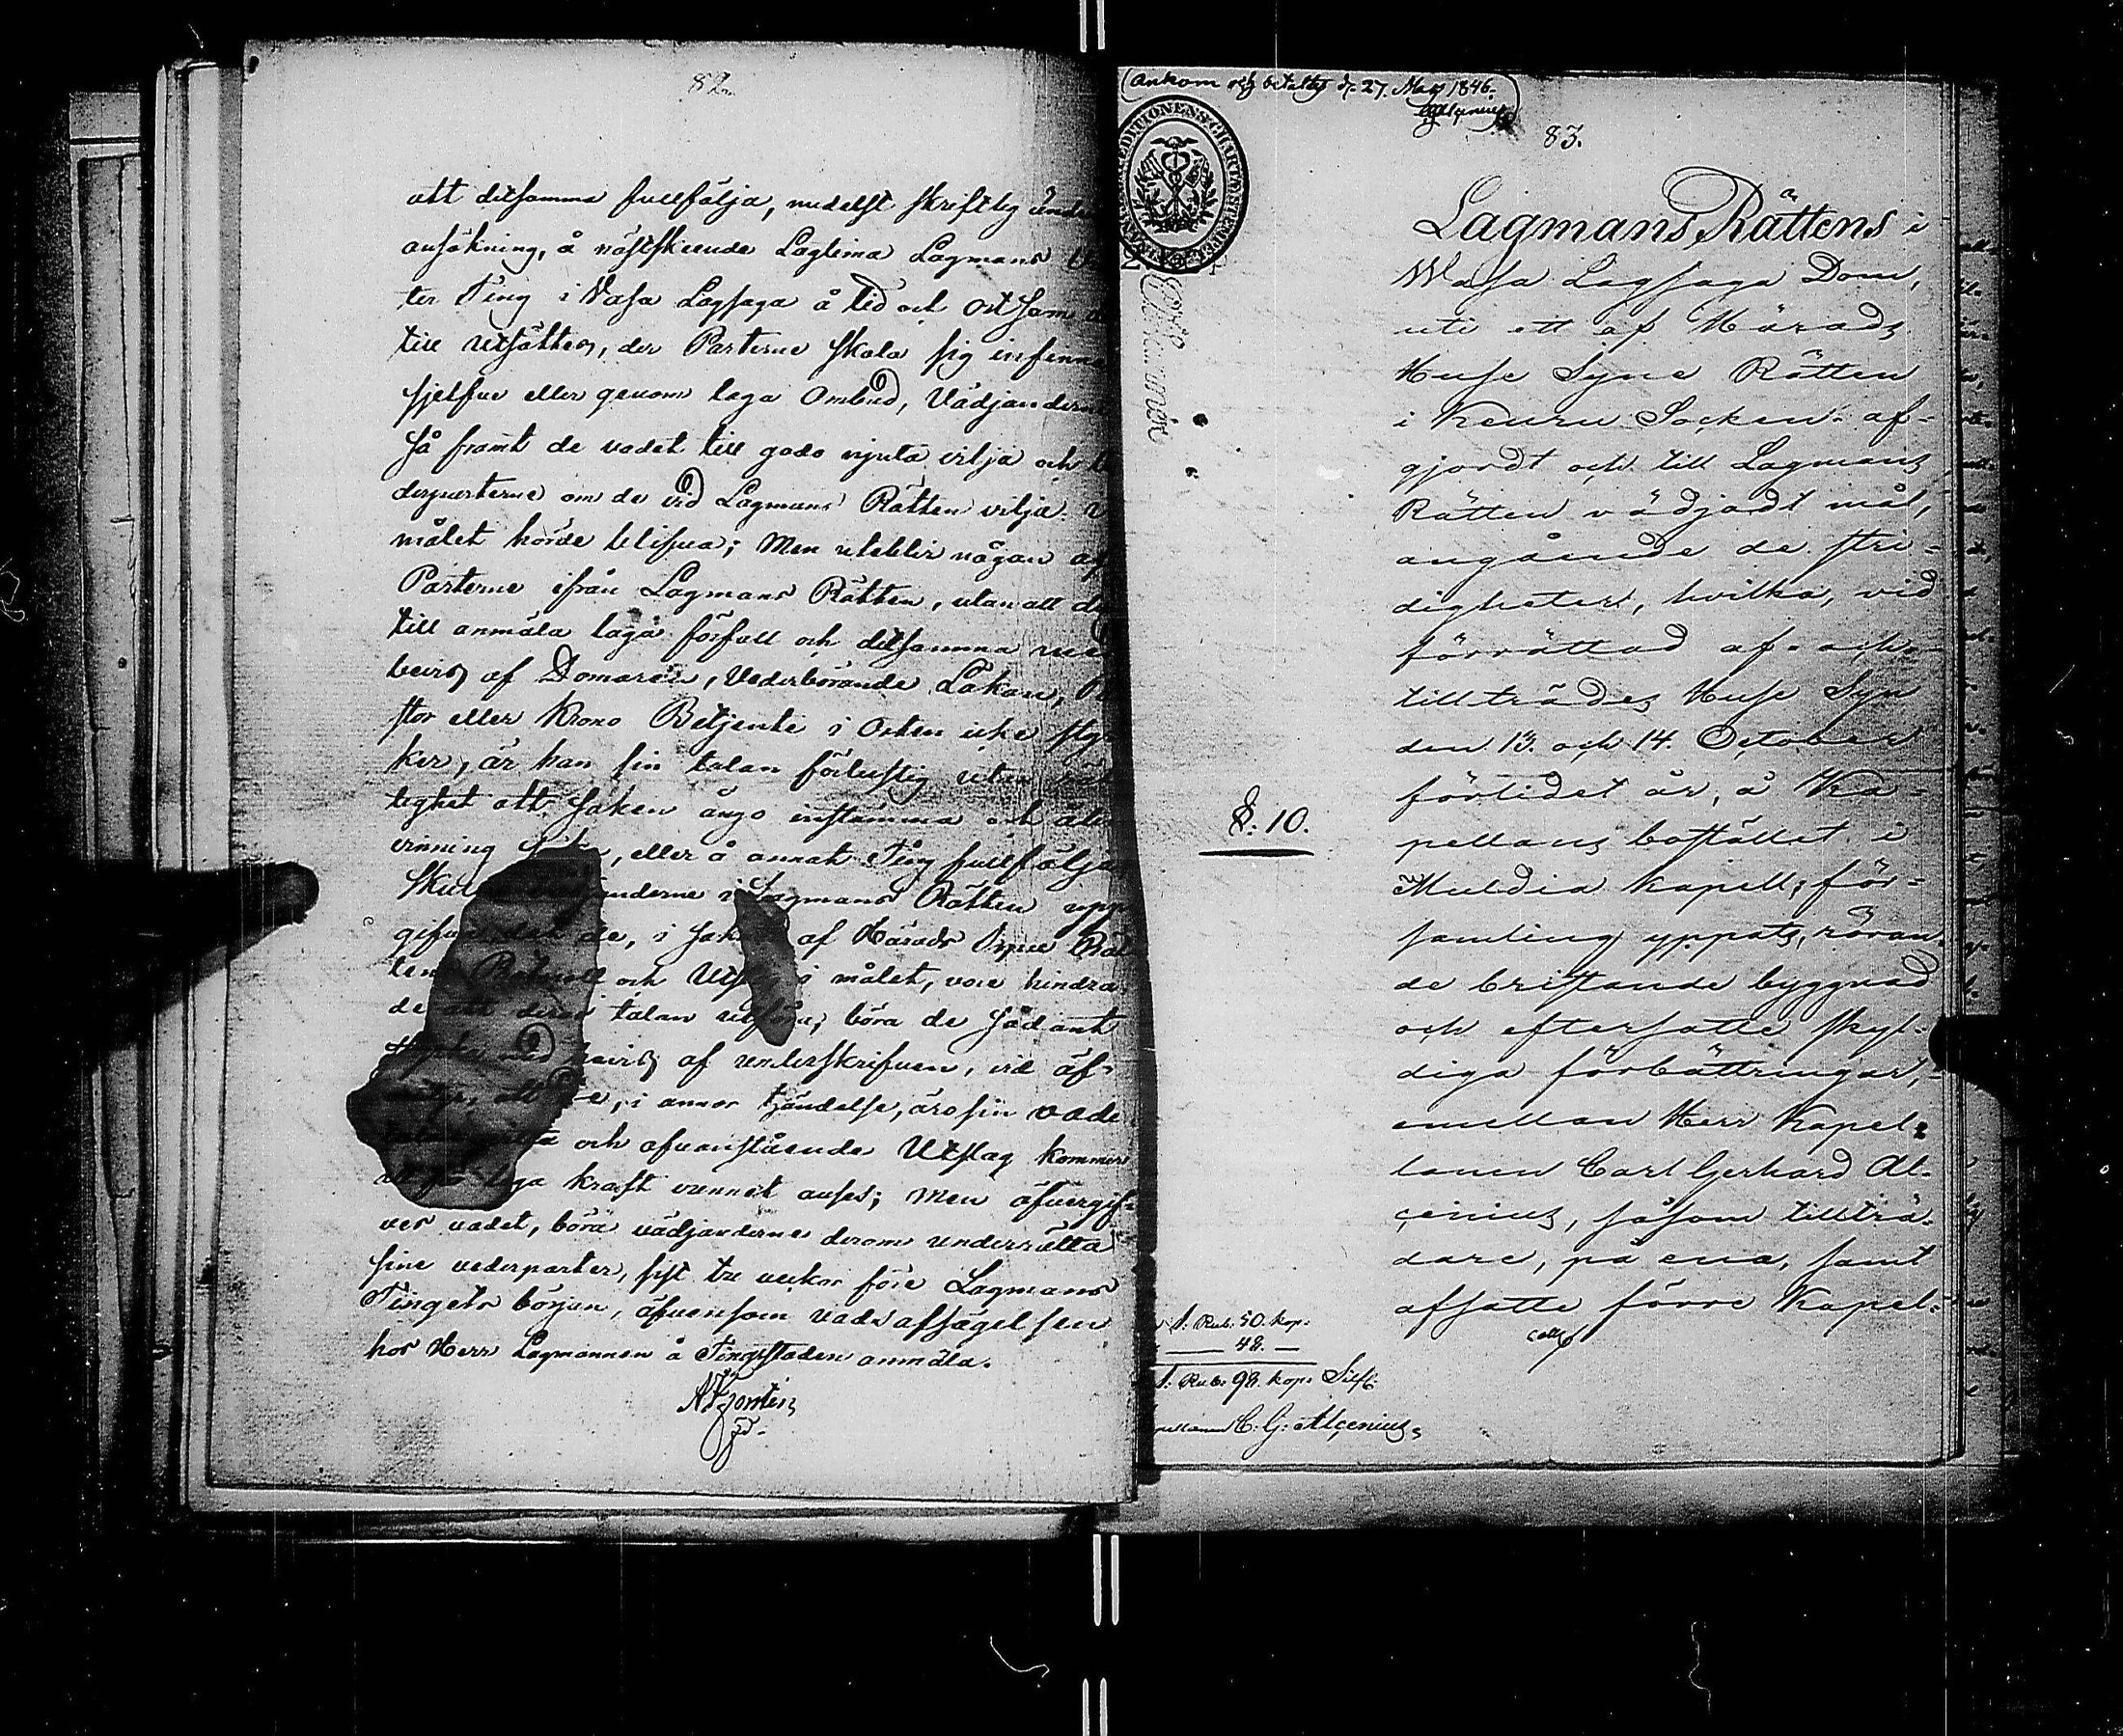 82.
att detsamma fullfölja, medelst skriftlig
ansökning, å nästskeende Lagtima Lagmans
ter Ting i Vasa Lagsaga å tid och ort som
till utsättes, der Parterne skola sig infinna
sjelfve eller genom laga Ombud, Vädjanderne
så framt de vadet till godo njuta vilja och
derparterne om de vid Lagmans Rätten vilja i
målet hörde blifva; Men uteblir någon af
Parterne ifrån Lagmans Rätten, utan att
till anmäla laga förfall och detsamma med
bevis af Domaren, Vederbörande Läkare,
stor eller Krono Betjente i Orten icke styr
ker, är han sin talan förlustig utan rät
tighet att saken ånyo instämma och åter
vinning söka, eller å annat Ting fullfölja
Skulle Vädjanderne i Lagmans Rätten upp
gifva det de, i sak af Härads Syne Rät
tens Protocoll och Utslag i målet, vore hindra
de att deras talan utföra; böra de sådant
styrka med bevis af underskrifven, vid äf-
att de, i annor händelse, äro sin vade
och ofvanstående Utslag kommer
att på laga kraft vunnet anses; Men öfvergif-
ves vadet, böra vädjanderne derom underrätta
sine vederparter, sist tre veckor före Lagmans
Tingets början, äfvensom vadsafsägelsen
hos Herr Lagmannen å Tingsstaden anmäla.
(Ankom och betaltes d. 27. Maj 1846.
Alcenius)
83.
Lagmans Rättens i
Wasa Lagsaga Dom,
uti ett af Härads
Huse Syne Rätten
i Keuru Socken af-
gjordt och till Lagmans
Rätten vädjadt mål,
angående de stri-
digheter, hvilka, vid
förrättad af- och
tillträdes Huse Syn
den 13. och 14. October
förlidet år, å Ka-
§: 10.
pellans bostället i
Muldia kapell; för-
samling yppats, röran-
de bristande byggnad
och eftersatte skyl-
diga förbättringar,
emellan Herr Kapel-
lanen Carl Gerhard Al-
cenius, såsom tillträ-
dare, på ena, samt
afsatte förre Kapel-
1. Rub. 50. kop:
48. —
1. Rub. 98. kop: Silf:
C: G: Alcenius.